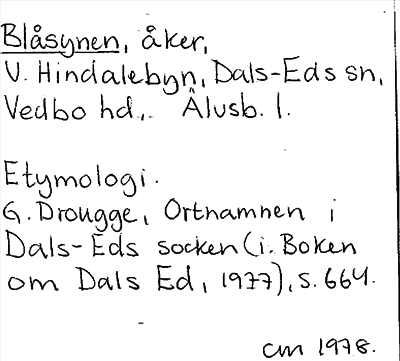 Blåsynen, åker,
V. Hindalebyn, Dals-Eds sn,
Vedbo hd., Älvsb. l.
Etymologi.
G. Drougge, Ortnamnen i
Dals-Eds socken (i. Boken
om Dals Ed, 1977), s. 664.
cm 1978.